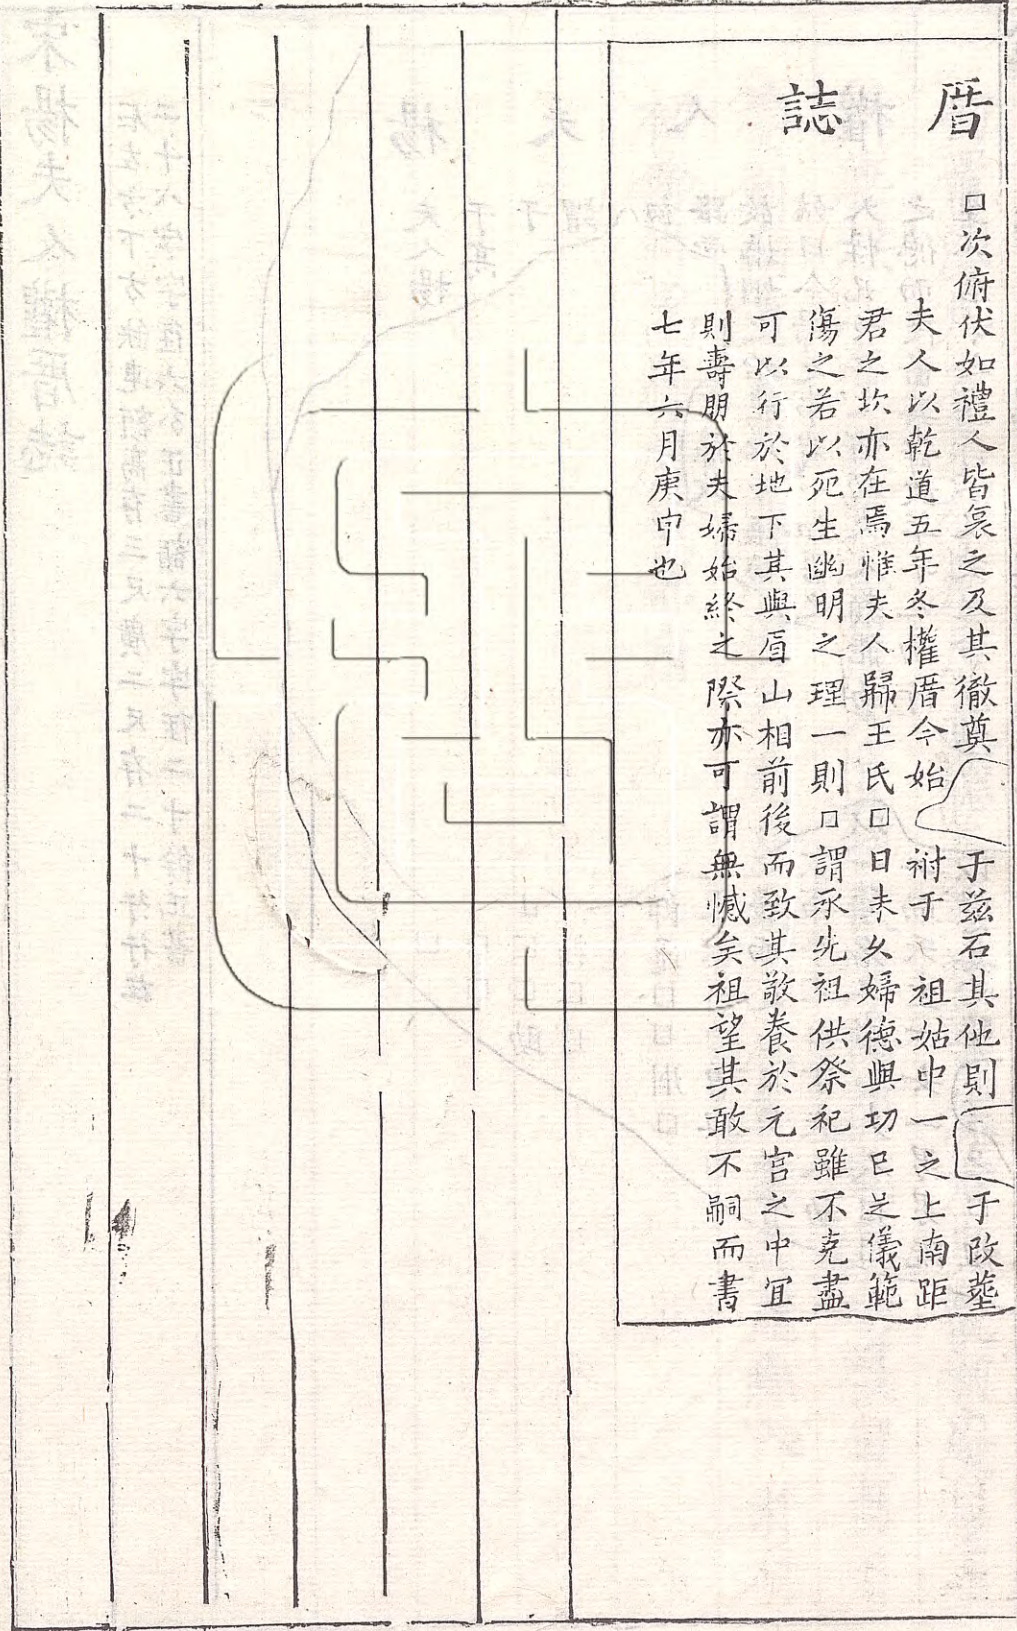 厝誌
□次俯伏如禮人皆哀之及其徹奠于兹石其他則于改塟
夫人以乾道五年冬權厝今始祔于祖姑中一之上南距
君之坎亦在焉惟夫人歸王氏□日未久婦德與功已足儀範
傷之若以死生幽明之理一則□謂承先祖供祭祀雖不克盡
可以行於地下其與眉山相前後而致其敬養於元宫之中宜
則壽朋於夫婦始終之際亦可謂無憾矣祖望其敢不嗣而書
七年六月庚申也